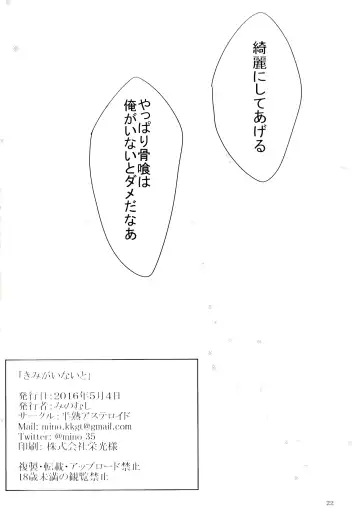 綺麗にしてあげる
やっぱり骨喰は
俺がいないとダメだなあ
『きみがいないと』
発行日:2016年5月4日
発行者:みのむし
サークル:半熟アステロイド
Mail: mino.kkgt@gmail.com
Twitter: @mino_35
印刷: 株式会社栄光様
複製・転載・アップロード禁止
18歳未満の観覧禁止
22